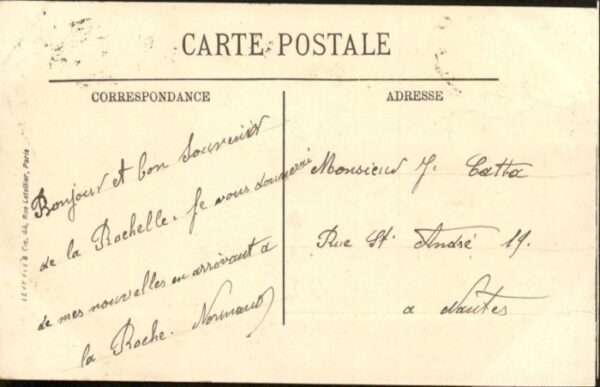 CARTE POSTALE
CORRESPONDANCE
Bonjour et bon souvenir
de la Rochelle. Je vous donnerai
de mes nouvelles en arrivant à
la Roche. Normand
ADRESSE
Monsieur J. Catta
Rue St André 19.
a Nantes
Fils & Cie, 44, Rue Letellier, Paris